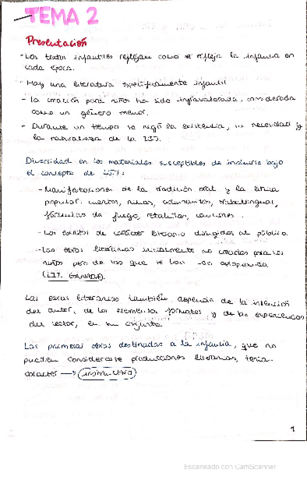 TEMA 2
Presentación
- Los textos infantiles reflejan como se refleja la infancia en
cada época.
- Hay una literatura específicamente infantil
- La creación para niños ha sido infravalorada, considerada
como un género menor.
- Durante un tiempo se negó la existencia, la necesidad y
la naturaleza de la LIJ.
Diversidad en los materiales susceptibles de incluirse bajo
el concepto de LIJ:
- Manifestaciones de la tradición oral y la lírica
popular: cuentos, nanas, adivinanzas, trabalenguas,
fórmulas de juego, retahílas, canciones.
- Los escritos de carácter literario dirigidos al público.
- Las obras literarias inicialmente no creadas para los
niños pero de las que se han
(LIT. GANADA)
Las obras literarias también dependen de la intención
del autor, de los formatos y de las experiencias
del lector, en su conjunto.
Las primeras obras destinadas a la infancia, que no
pueden considerarse producciones literarias, tenían
carácter → instructivo
1
Escaneado con CamScanner